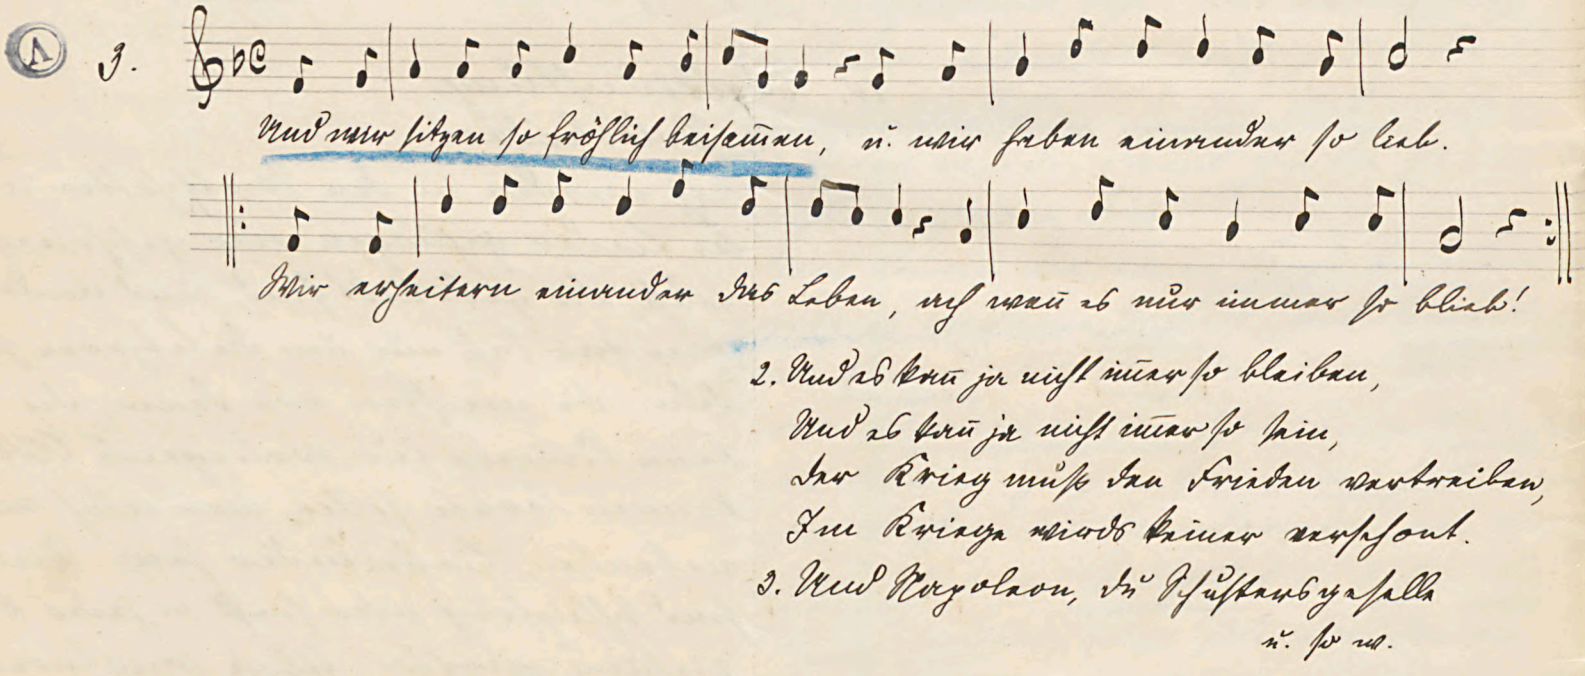 3.
Und wir sitzen so fröhlich beisam̅en, u. wir haben einander so lieb.
Wir erheitern einander das Leben, ach wen̅ es nur immer so blieb!
2. Und es kan̅ ja nicht im̅er so bleiben,
Und es kan̅ ja nicht im̅er so sein,
Der Krieg muß den Frieden vertreiben,
Im Kriege wirds keiner verschont.
3. Und Napoleon, du Schustersgeselle
u. so w.